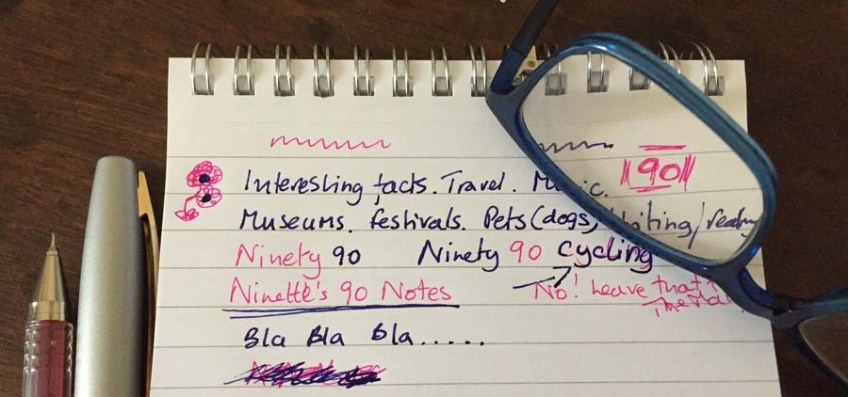 90
Interesting facts. Travel. Music.
Museums. festivals. Pets (dogs, writing/
Ninety 90 Ninety 90 cycling
Ninette's 90 Notes No! Leave that
Bla Bla Bla.....